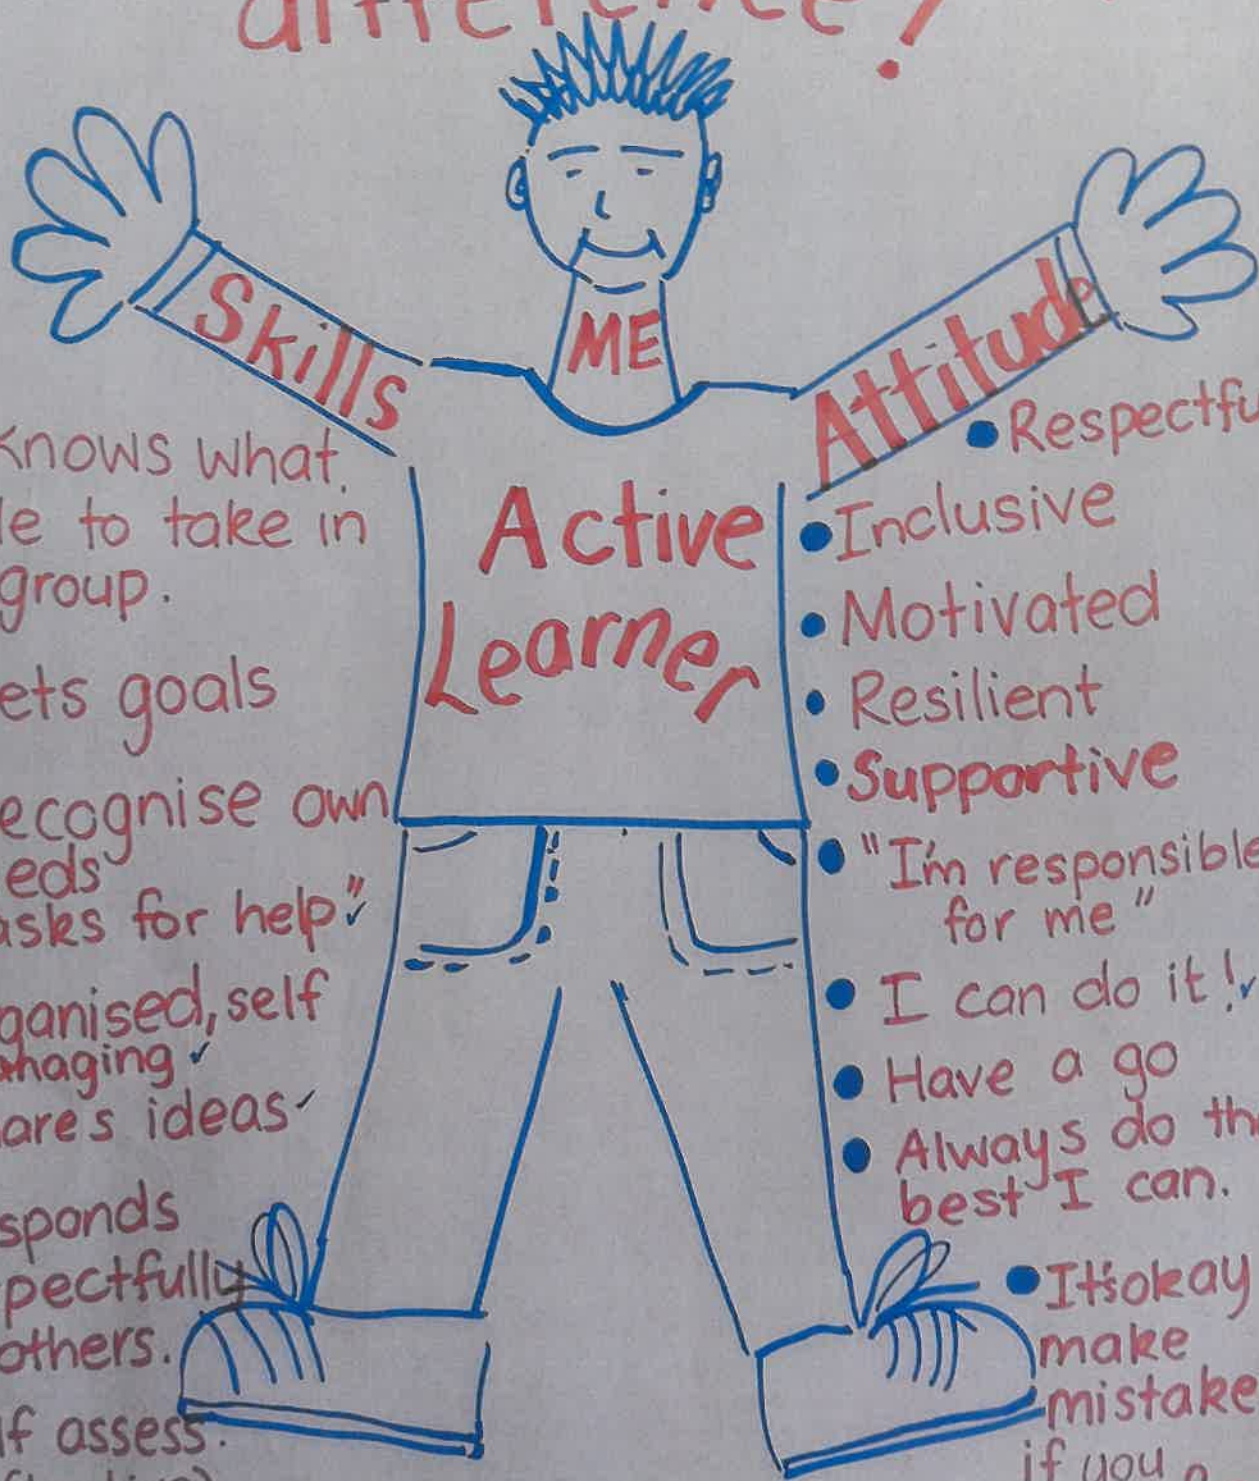 difference!
ME
Skills
Knows what
le to take in
group.
ets goals
ecognise own
eds
asks for help"
ganised, self
anaging
are's ideas
sponds
pectfully
others.
lf assess.
Active
Learner
Attitude
• Respectfu
• Inclusive
• Motivated
• Resilient
• Supportive
• "I'm responsible
for me"
• I can do it!
• Have a go
• Always do th
best I can.
• It's okay
make
mistake
if you